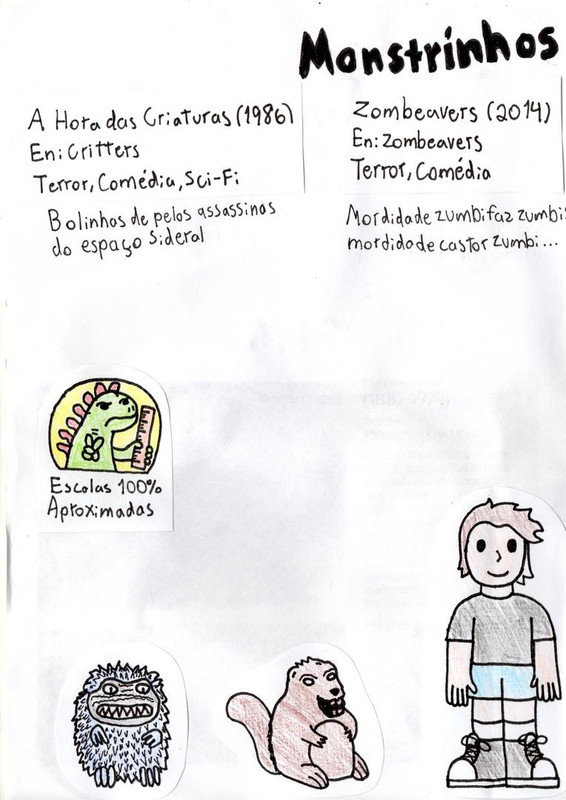 Monstrinhos
A Hora das Criaturas (1986)
En: Critters
Terror, Comédia, Sci-Fi
Bolinhas de pelos assassinas
do espaço sideral
Zombeavers (2014)
En: Zombeavers
Terror, Comédia
Mordida de zumbi faz zumbi:
mordida de castor zumbi...
Escalas 100%
Aproximadas